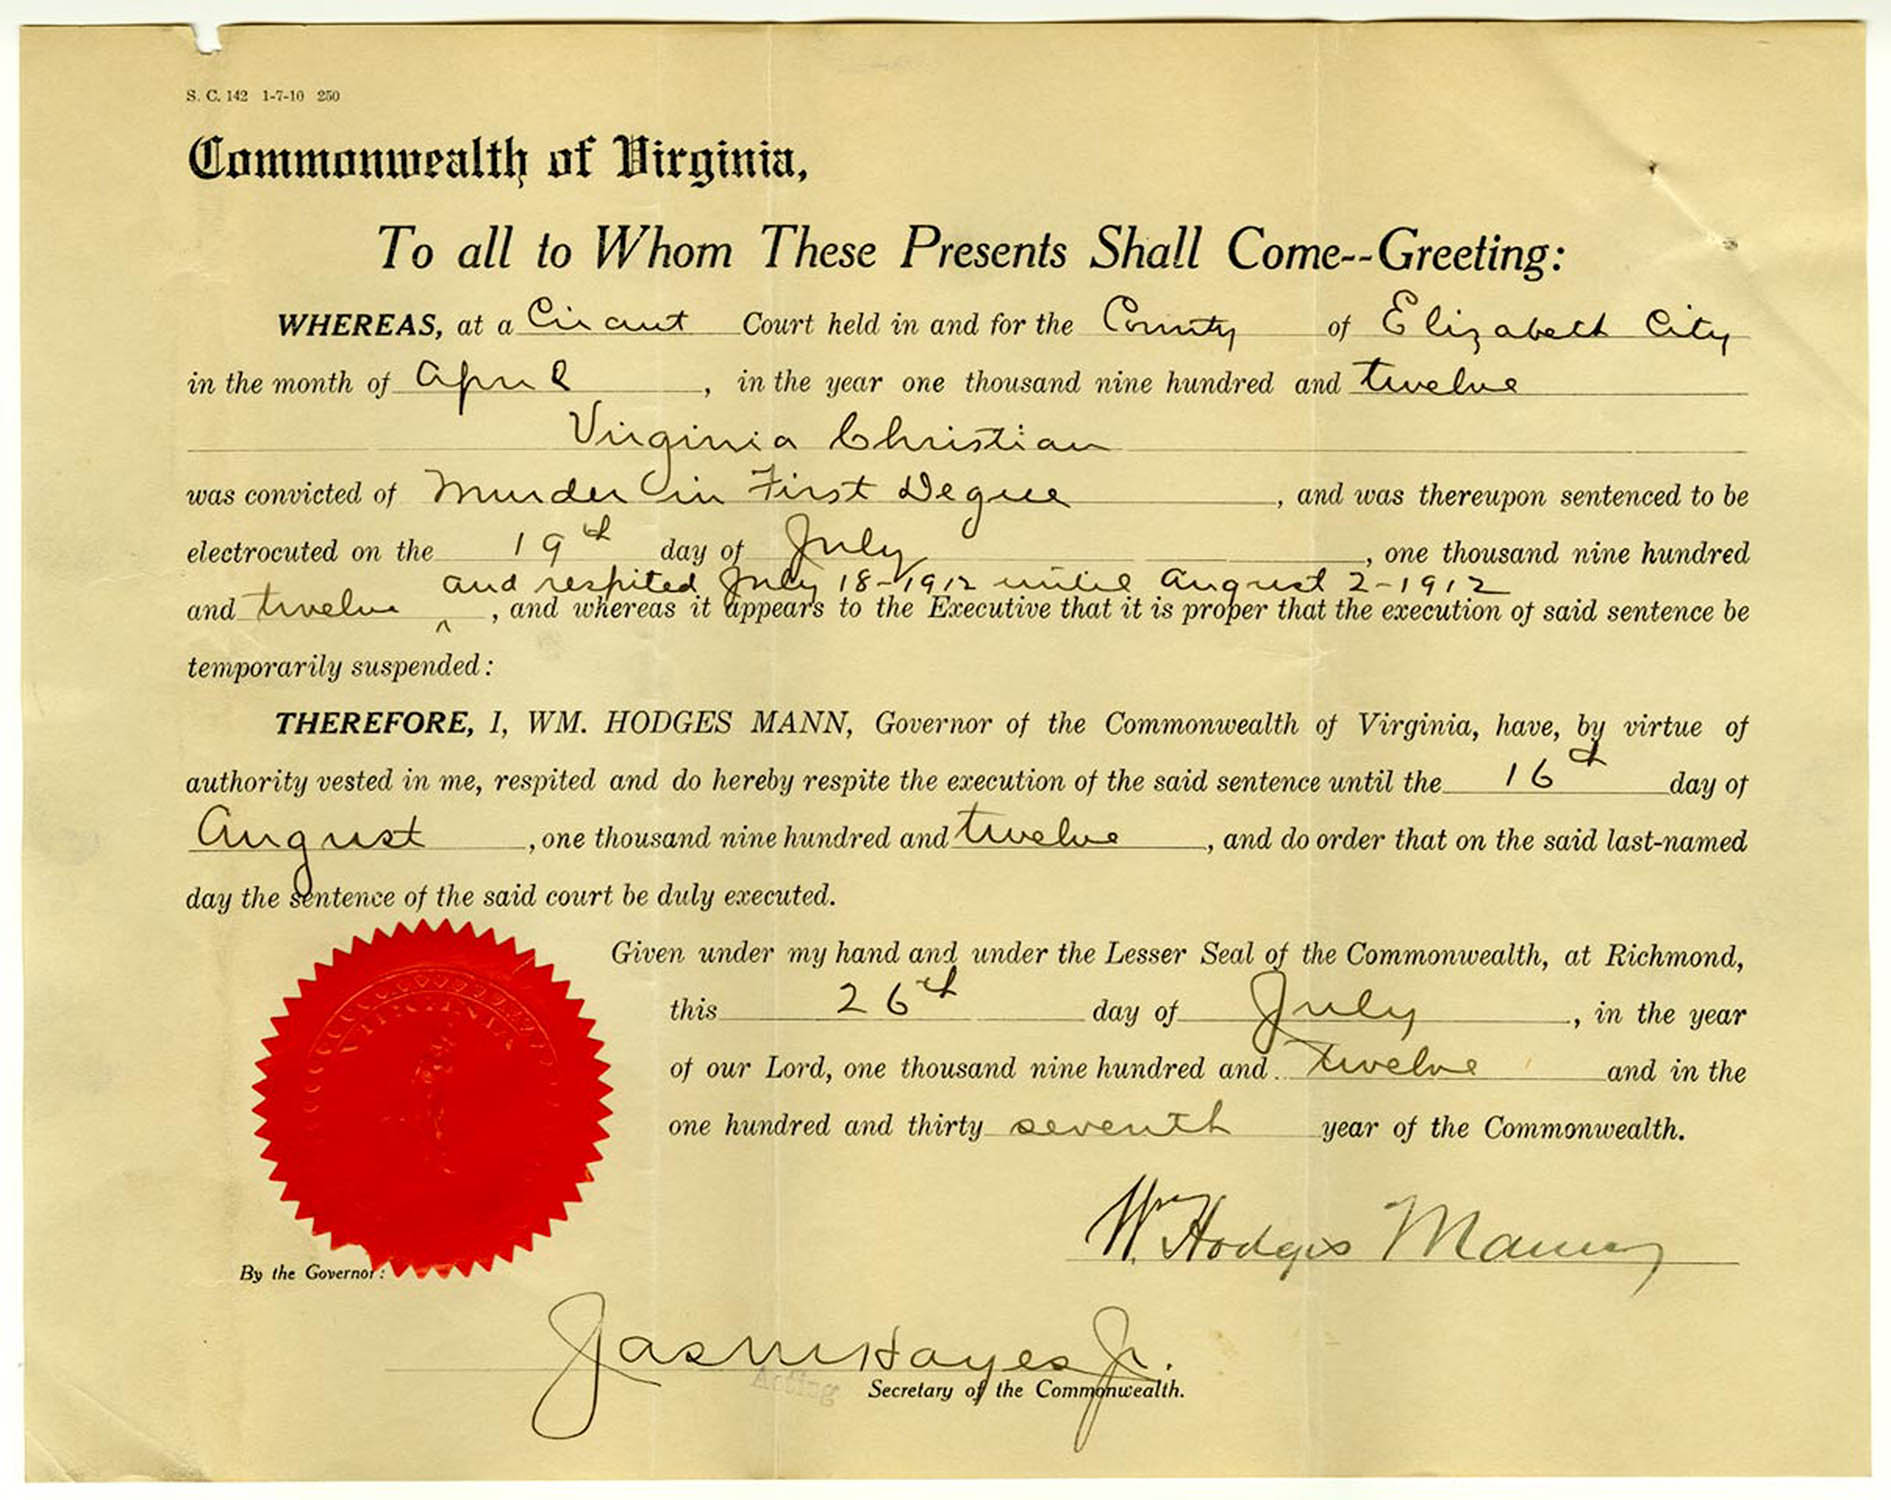 S. C. 142 1-7-10 250
Commonwealth of Virginia,
To all to Whom These Presents Shall Come--Greeting:
WHEREAS, at a Circuit Court held in and for the County of Elizabeth City
in the month of April, in the year one thousand nine hundred and twelve
Virginia Christian
was convicted of Murder in First Degree, and was thereupon sentenced to be
electrocuted on the 19th day of July, one thousand nine hundred
and respited July 18-1912 until August 2-1912
and twelve ^, and whereas it appears to the Executive that it is proper that the execution of said sentence be
temporarily suspended:
THEREFORE, I, WM. HODGES MANN, Governor of the Commonwealth of Virginia, have, by virtue of
authority vested in me, respited and do hereby respite the execution of the said sentence until the 16th day of
August, one thousand nine hundred and twelve, and do order that on the said last-named
day the sentence of the said court be duly executed.
Given under my hand and under the Lesser Seal of the Commonwealth, at Richmond,
this 26th day of July, in the year
of our Lord, one thousand nine hundred and twelve and in the
one hundred and thirty seventh year of the Commonwealth.
Wm Hodges Mann
By the Governor:
Jas M Hayes Jr.
Acting Secretary of the Commonwealth.